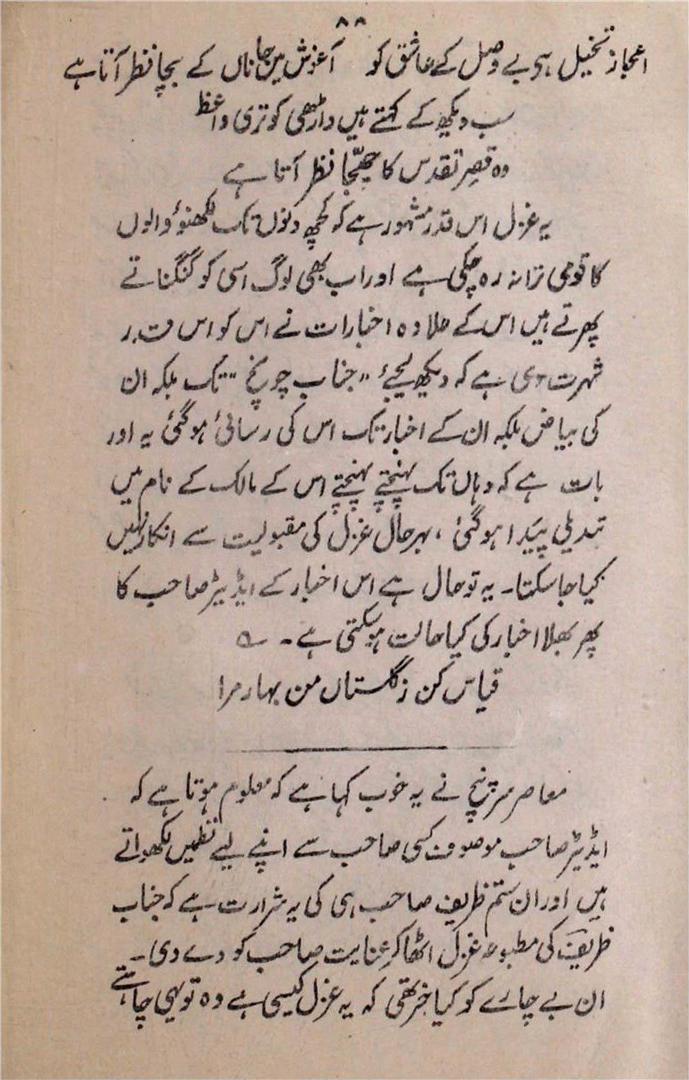 ۸۸
اعجاز تخیل ہی بے وصل کے عاشق کو آغوش میں جاناں کے بچا نظر آتا ہے
سب دیکھ کے کہتے ہیں داڑھی کو تری واعظ
وہ قصرِ تقدس کا چھجّا نظر آتا ہے
یہ غزل اس قدر مشہور ہے کہ کچھ دنوں تک لکھنؤ والوں
کا قومی ترانہ رہ چکی ہے اور اب بھی لوگ اسی کو گنگناتے
پھرتے ہیں اس کے علاوہ اخبارات نے اس کو اس قدر
شہرت دی ہے کہ دیکھ لیجئے "جناب چونچ" تک بلکہ ان
کی بیاض بلکہ ان کے اخبار تک اس کی رسائی ہو گئی یہ اور
بات ہے کہ وہاں تک پہنچتے پہنچتے اس کے مالک کے نام میں
تبدیلی پیدا ہو گئی، بہر حال غزل کی مقبولیت سے انکار نہیں
کیا جا سکتا۔ یہ تو حال ہے اس اخبار کے ایڈیٹر صاحب کا
پھر بھلا اخبار کی کیا حالت ہو سکتی ہے۔ ؎
قیاس کن ز گلستاں من بہار مرا
معاصر سرپنچ نے یہ خوب کہا ہے کہ معلوم ہوتا ہے کہ
ایڈیٹر صاحب موصوف کسی صاحب سے اپنے لیے نظمیں لکھواتے
ہیں اور ان ستم ظریف صاحب ہی کی یہ شرارت ہے کہ جناب
ظریف کی مطبوعہ غزل اٹھا کر عنایت صاحب کو دے دی۔
ان بے چارے کو کیا خبر تھی کہ یہ غزل کیسی ہے وہ تو یہی چاہتے